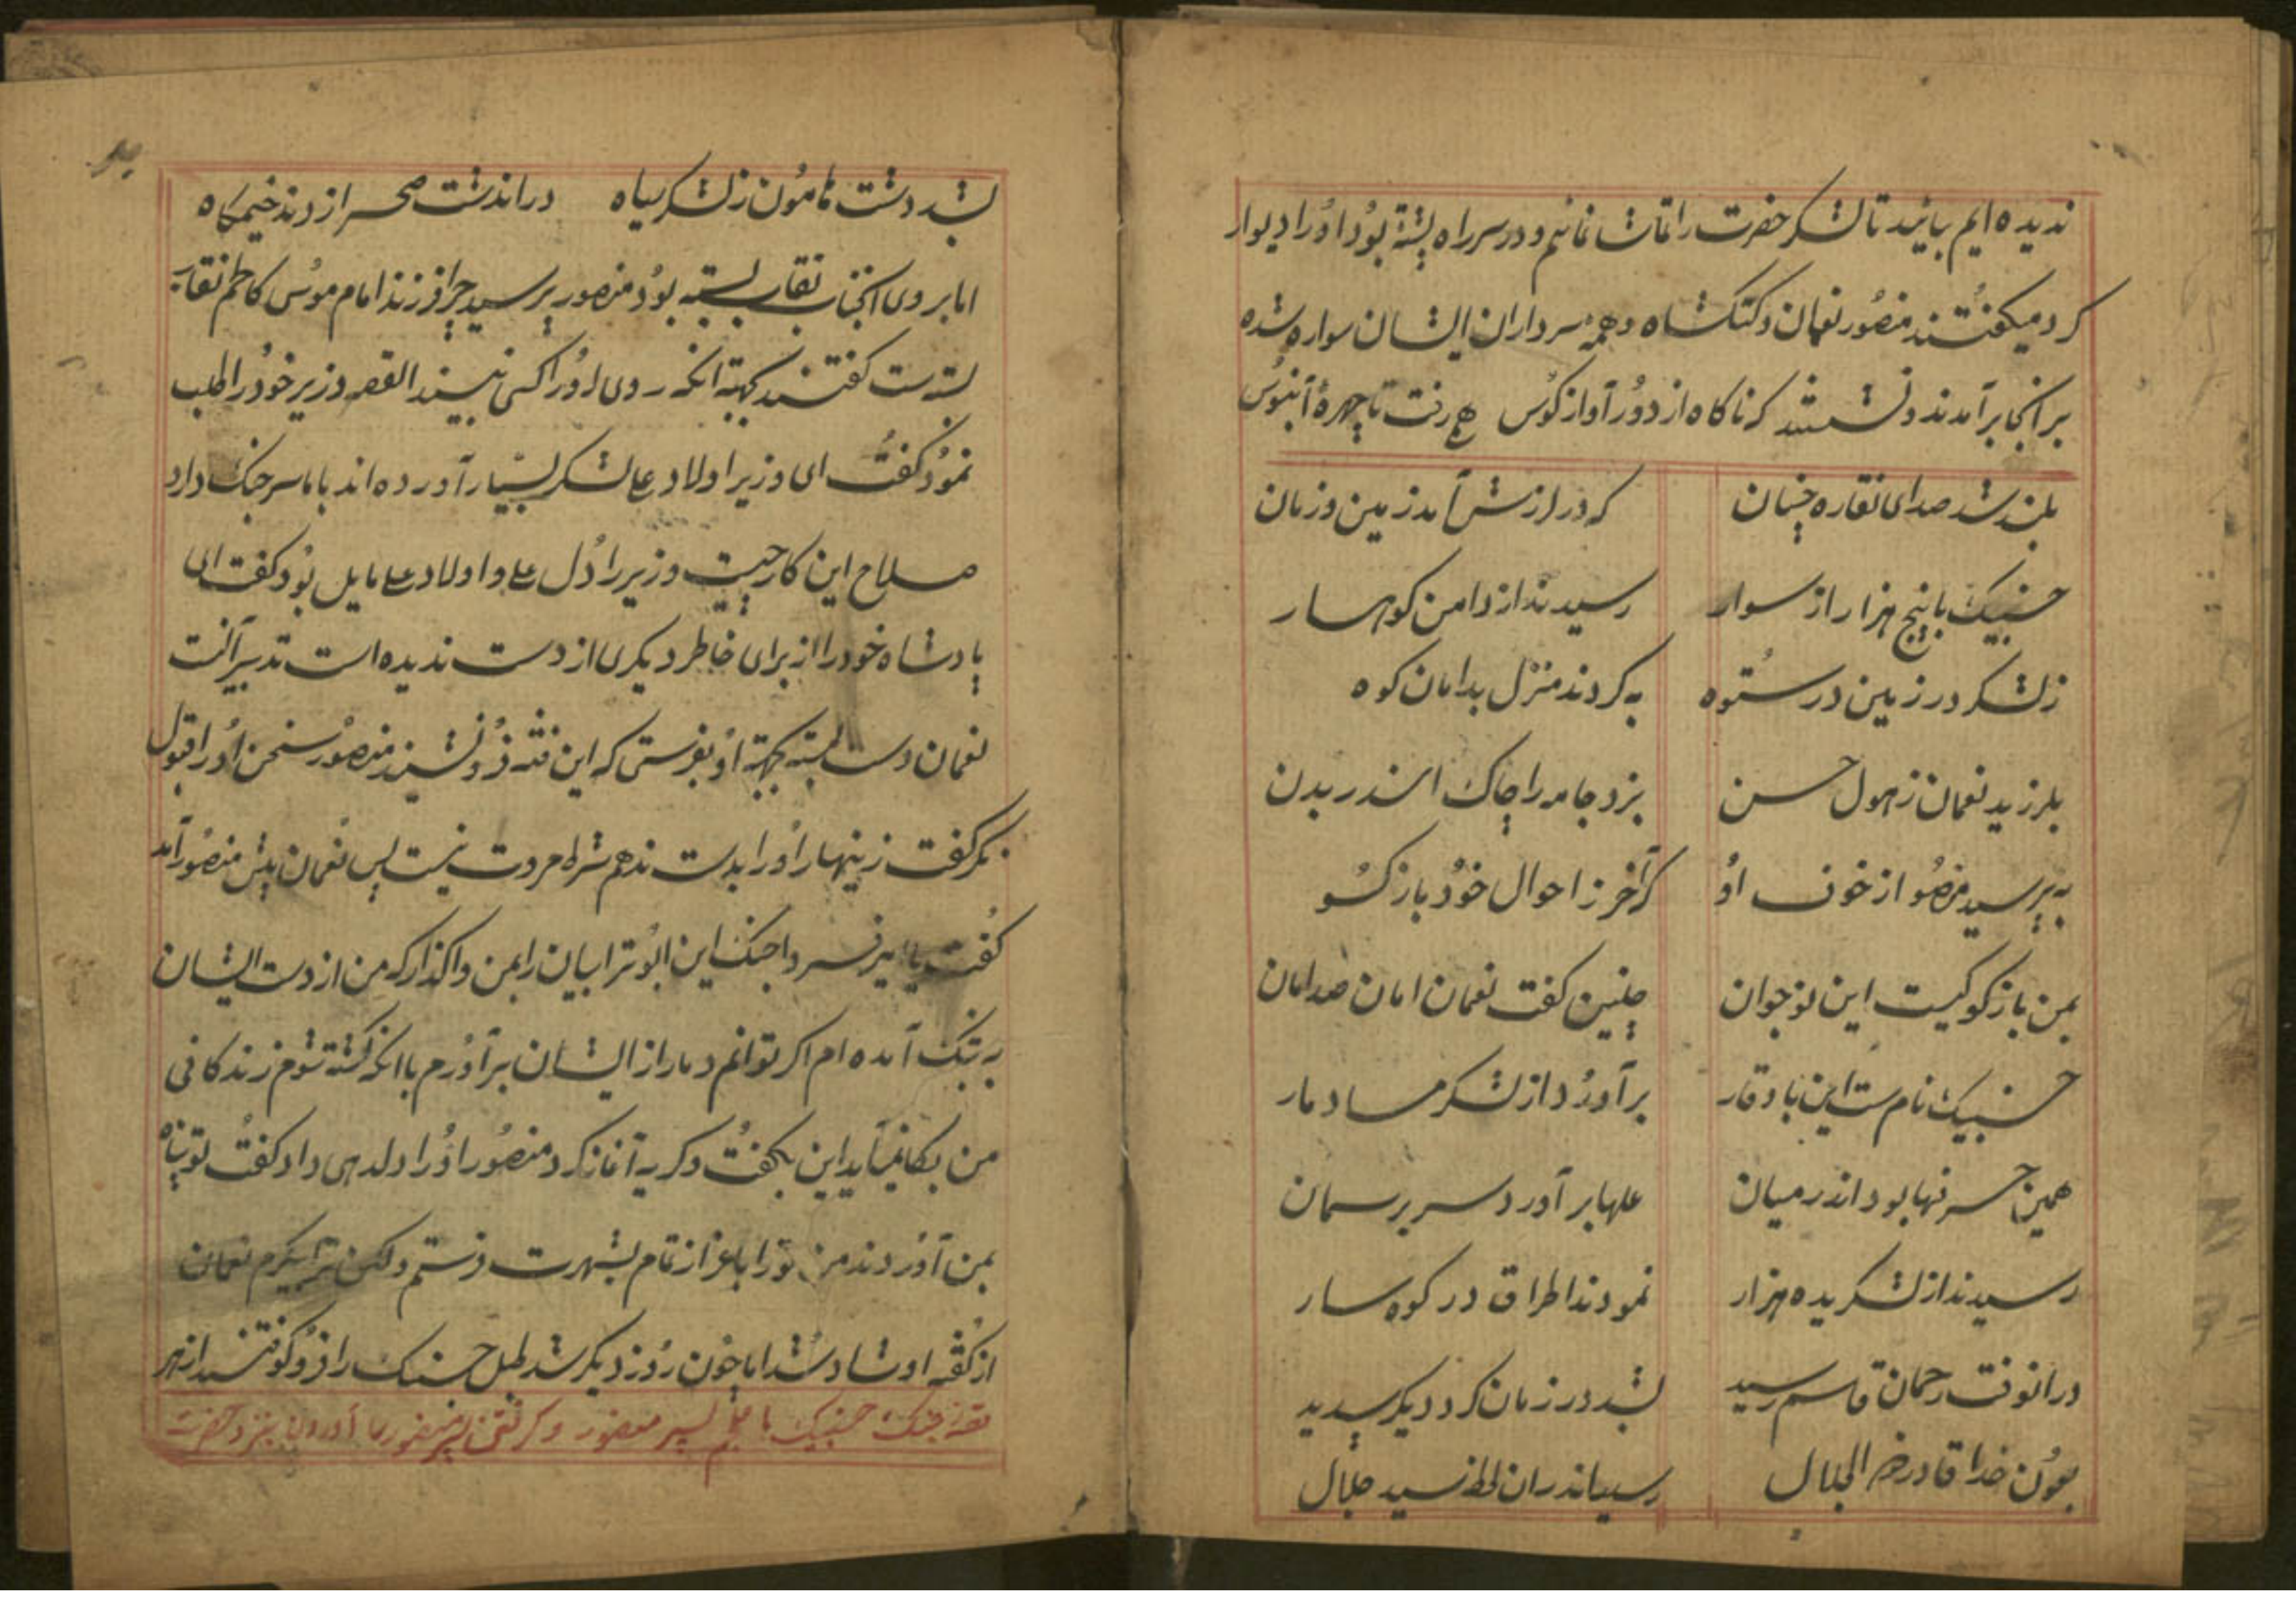 ندیده ایم بیائید تا لشکر حضرت را تماشا نمائیم و در سر راه پشتهٔ بود او را دیوار
کرد میکفتند منصور نعمان و کتکشاه و همهٔ سرداران ایشان سواره شده
بر انجا بر آمدند و نشستند که ناکاه از دور آواز کوس رفت تا چهرهٔ آبنوس
بلند شد صدای نقاره چنان که در لرزش آمد زمین و زمان
جنبیک با پنج هزار از سوار رسیدند از دامن کوهسار
ز لشکر در زمین در ستوه به کردند منزل بدامان کوه
بلرزید نعمان ز هول حسن بزد جامه را چاک اندر بدن
به پرسید منصو از خوف او کآخر ز احوال خود باز کو
بمن باز کو کیست این نوجوان چنین کفت نعمان امان صد امان
جنبیک نام ست این با وقار برآورد از لشکر ما دمار
همین جسر نها بود اندر میان علمها بر آورد سر بر سمان
رسیدند از لشکر یده هزار نمودند اطراق در کوه سار
در انوقت رحمان قاسم رسید بشد در زمان کرد دیکر پدید
بعون خدا قادر ذو الجلال رسید اندران لحظه سید جلال
بشد دشت هامون ز لشکر سیاه در اندشت صحرا زدند خیمکاه
اما بر وی انجناب نقاب بسته بود منصور پرسید چرا فرزند امام موسی کاظم نقاب
بسته ست کفتند بجهته انکه روی او را کسی نبیند القصه وزیر خود را طلب
نمود کفت ای وزیر اولاد علی لشکر بسیار آورده اند با ما سر جنک دارد
صلاح این کار چیست وزیر را دل بعلی و اولاد علی مایل بود کفت ای
پادشاه خود را از برای خاطر دیکری از دست ندیده است تدبیر آنست
نعمان دست بسته بجهته او بفرستی که این فتنه فرو نشیند منصور سخن او را قبول
نکر کفت زینهار او را بدست ندهم شرط مروت نیست پس نعمان پیش منصور آمد
کفت یا امیر فردا جنک این ابوترابیان را بمن واکذار که من از دست ایشان
به تنک آمده ام اکر توانم دمار از ایشان بر آورم یا انکه کشته شوم زندکانی
من بکار نمیآید این بکفت و کریه آغاز کرد منصور او را دلدهی داد کفت تو پناه
بمن آوردند من تو را باعزاز تمام بشهرت فرستم و لکن نعمان
از کفته او شاد شد اما چون روز دیکر شد طبل جنک را فرو کوفتند از هر
قصه جنک جنبیک با پسر منصور و کرفتن پسر منصور را آوردن بنزد حضرت